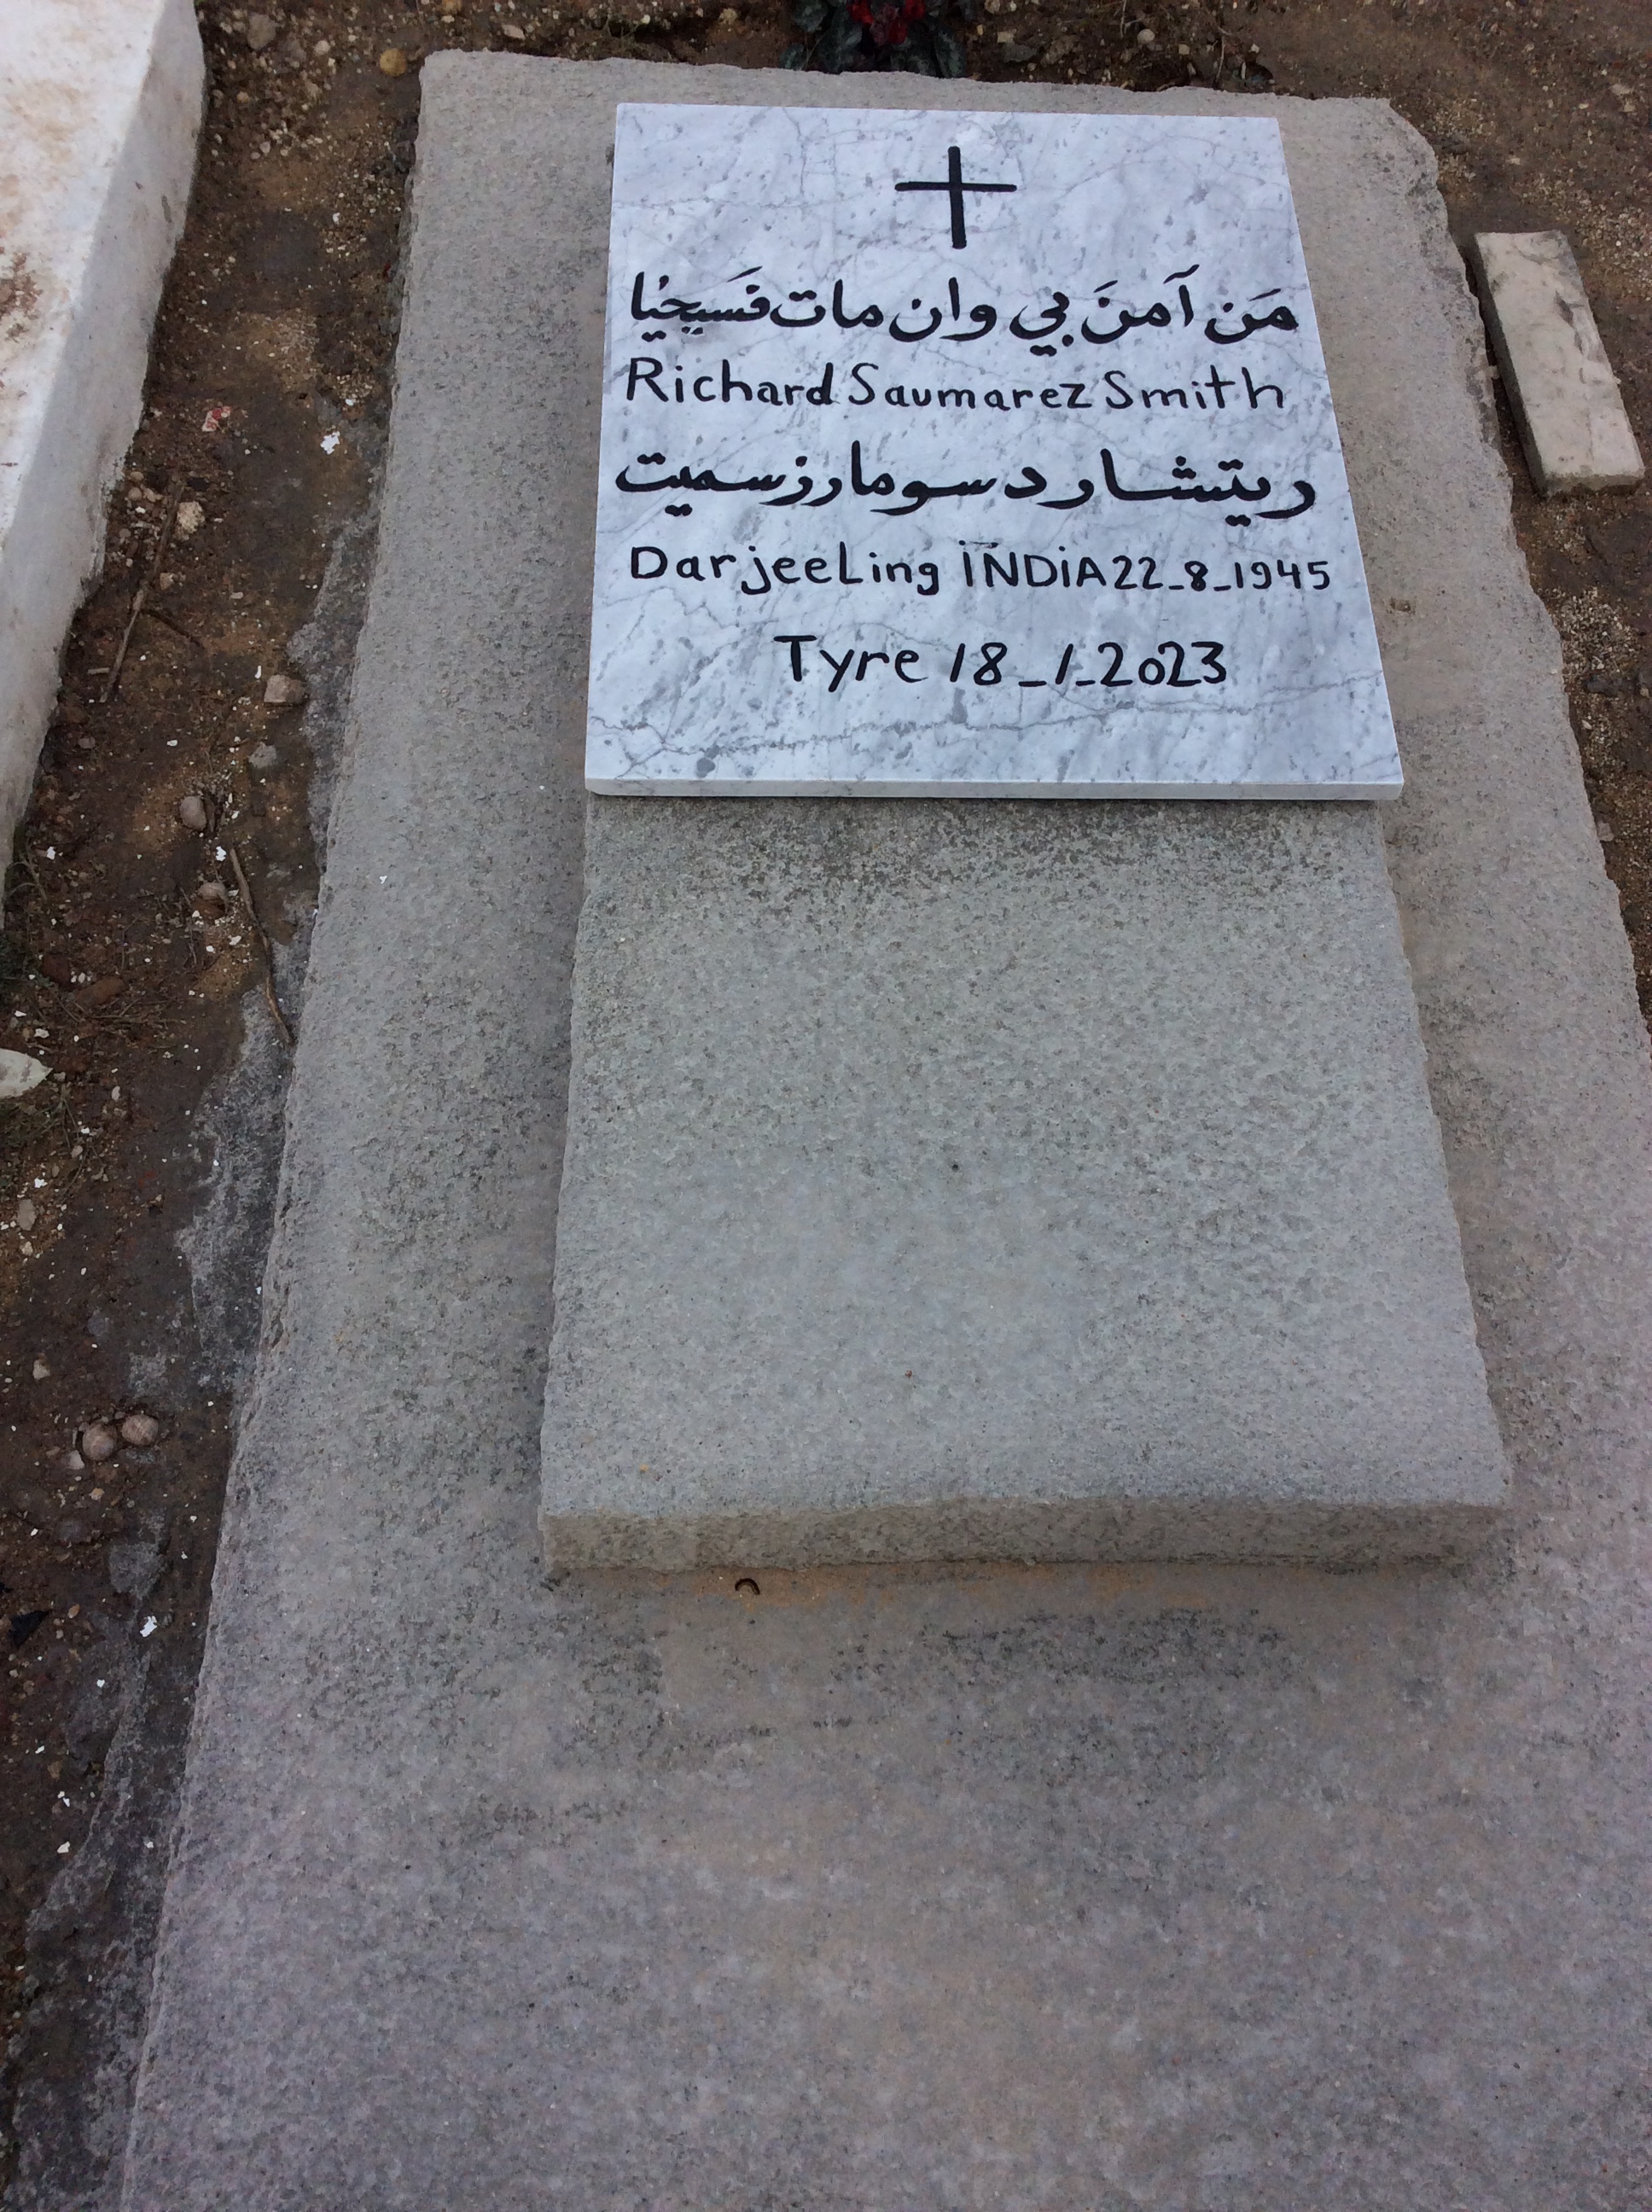 مَن آمنَ بي وان مات فسَيحيَا
Richard Saumarez Smith
ريتشارد سومارز سميت
DarjeeLing iNDiA 22_8_1945
Tyre 18_1_2023